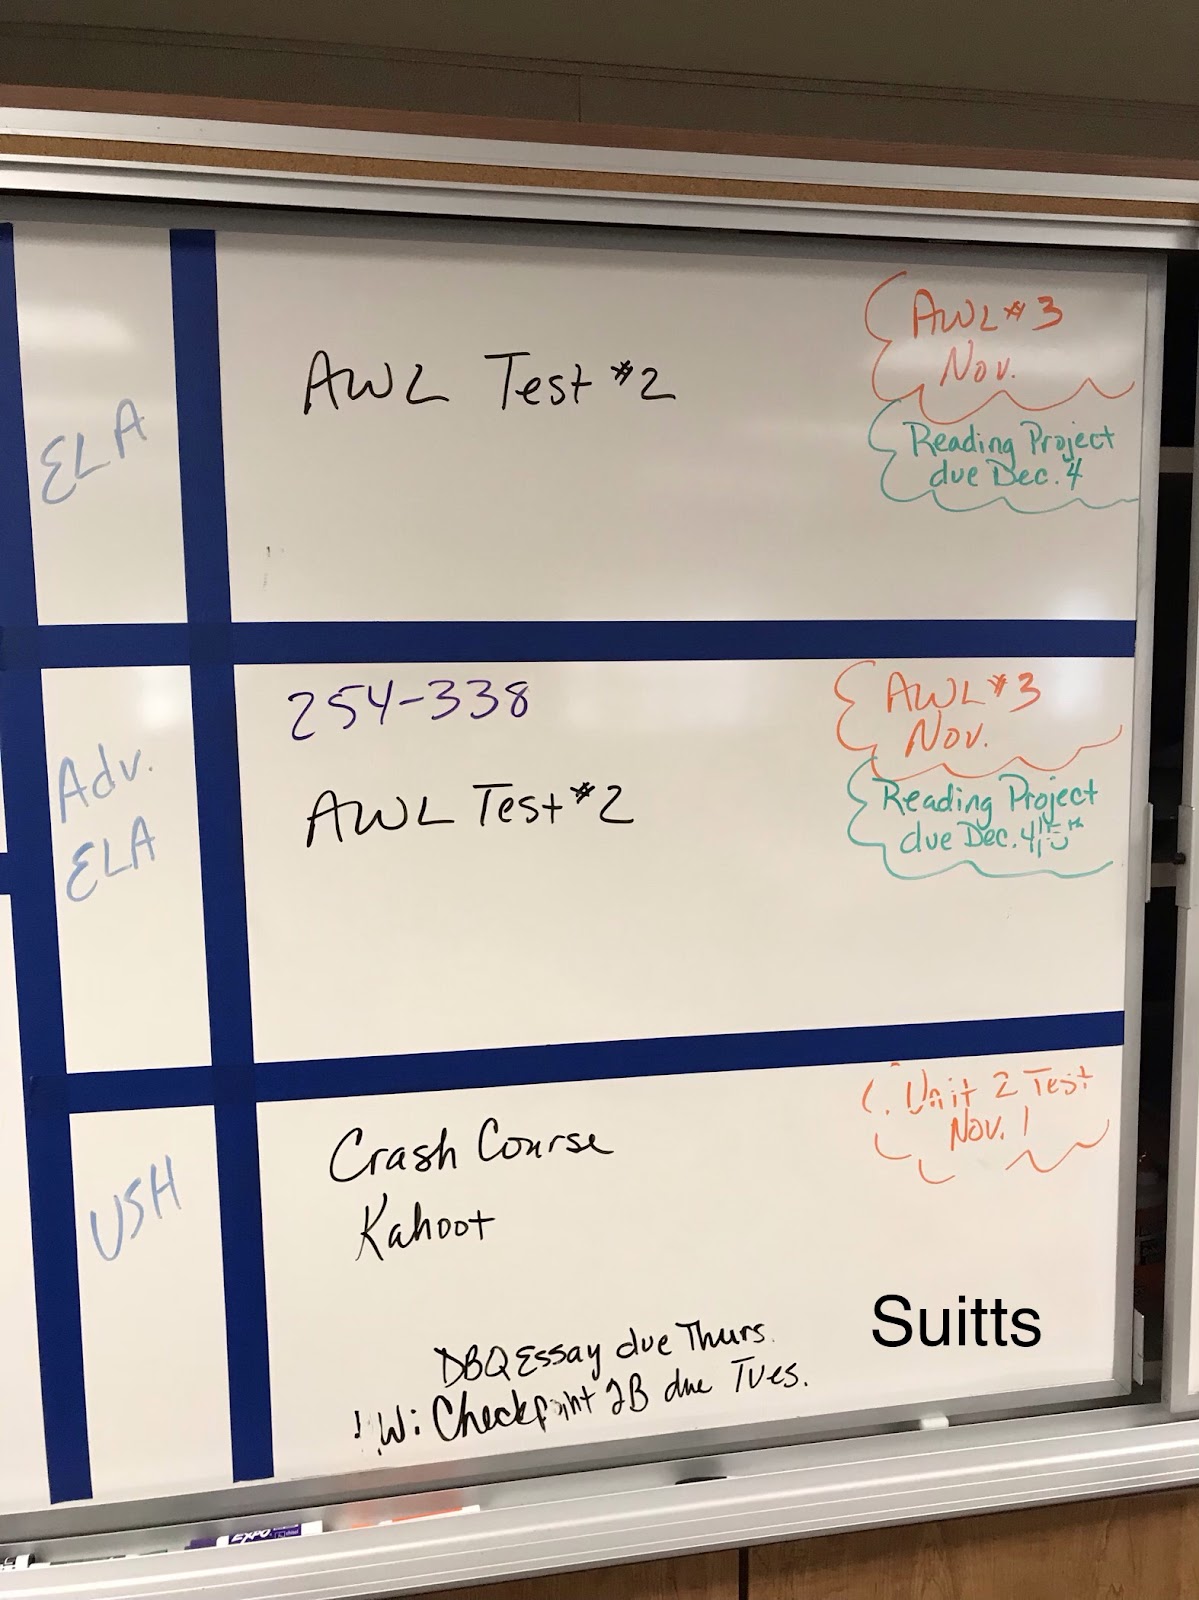 ELA
AWL Test #2
AWL #3
Nov.
Reading Project
due Dec. 4
Adv.
ELA
254-338
AWL Test #2
AWL #3
Nov.
Reading Project
due Dec. 4
USH
Crash Course
Kahoot
Unit 2 Test
Nov. 1
DBQ Essay due Thurs.
Checkpoint 2B due Tues.
Suitts
EXPO